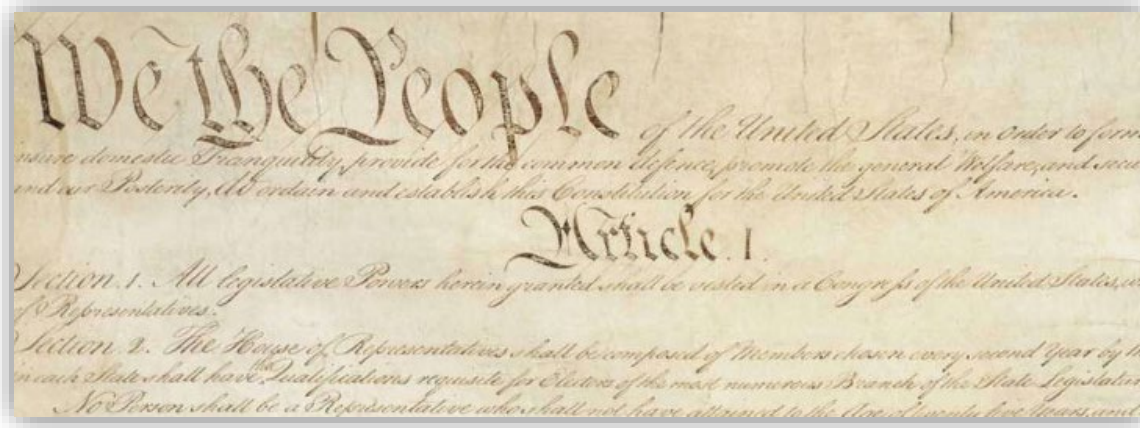 We the People of the United States, in Order to form
insure domestic Tranquility, provide for the common defence, promote the general Welfare, and secu
and our Posterity, do ordain and establish this Constitution for the United States of America.
Article. I.
Section. 1. All legislative Powers herein granted shall be vested in a Congress of the United States, w
of Representatives.
Section. 2. The House of Representatives shall be composed of Members chosen every second Year by th
in each State shall have the Qualifications requisite for Electors of the most numerous Branch of the State Legislatur
No Person shall be a Representative who shall not have attained to the Age of twenty five Years, and